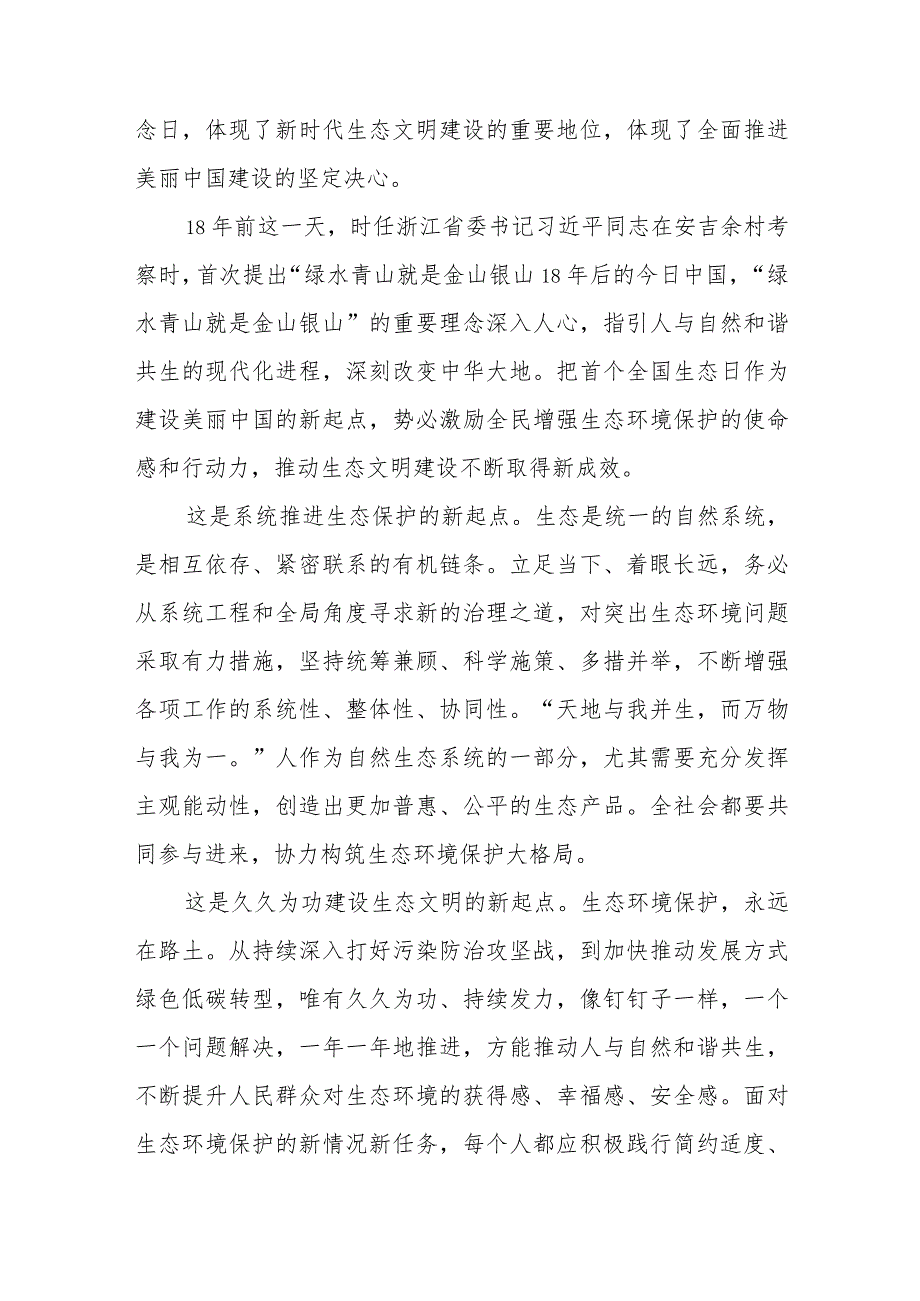 念日，体现了新时代生态文明建设的重要地位，体现了全面推进
美丽中国建设的坚定决心。
18年前这一天，时任浙江省委书记习近平同志在安吉余村考
察时，首次提出“绿水青山就是金山银山18年后的今日中国，“绿
水青山就是金山银山”的重要理念深入人心，指引人与自然和谐
共生的现代化进程，深刻改变中华大地。把首个全国生态日作为
建设美丽中国的新起点，势必激励全民增强生态环境保护的使命
感和行动力，推动生态文明建设不断取得新成效。
这是系统推进生态保护的新起点。生态是统一的自然系统，
是相互依存、紧密联系的有机链条。立足当下、着眼长远，务必
从系统工程和全局角度寻求新的治理之道，对突出生态环境问题
采取有力措施，坚持统筹兼顾、科学施策、多措并举，不断增强
各项工作的系统性、整体性、协同性。“天地与我并生，而万物
与我为一。”人作为自然生态系统的一部分，尤其需要充分发挥
主观能动性，创造出更加普惠、公平的生态产品。全社会都要共
同参与进来，协力构筑生态环境保护大格局。
这是久久为功建设生态文明的新起点。生态环境保护，永远
在路土。从持续深入打好污染防治攻坚战，到加快推动发展方式
绿色低碳转型，唯有久久为功、持续发力，像钉钉子一样，一个
一个问题解决，一年一年地推进，方能推动人与自然和谐共生，
不断提升人民群众对生态环境的获得感、幸福感、安全感。面对
生态环境保护的新情况新任务，每个人都应积极践行简约适度、